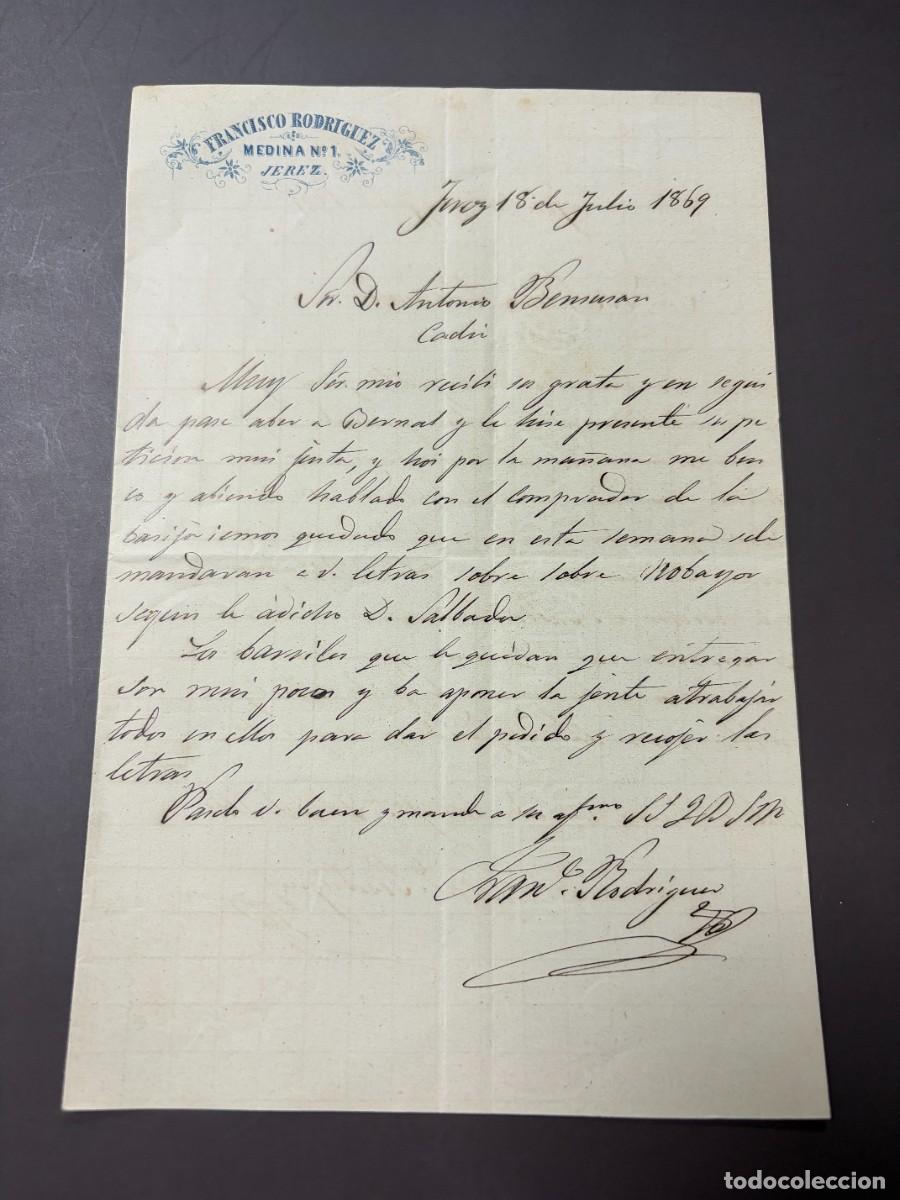 FRANCISCO RODRIGUEZ
MEDINA Nº 1.
JEREZ.
Jerez 18 de Julio 1869
Sr. D. Antonio Bensusan
Cadiz
Muy Sór. mio recibi su grata y en segui
da pase aber a Bernal y le hise presente su pe
ticion mui justa, y hoi por la mañana me bus
co y abiendo hablado con el comprador de la
basija iemos quedado que en esta semana sele
mandaran a v. letras sobre sobre
segun le a dicho D. Salbador
Los barriles que le quedan que entregar
son mui pocos y ba aponer la jente atrabajar
todos en ellos para dar el pedido y recojer las
letras
Paselo v. buen y mande a su afmo SS
Franco. Rodriguez
todocoleccion